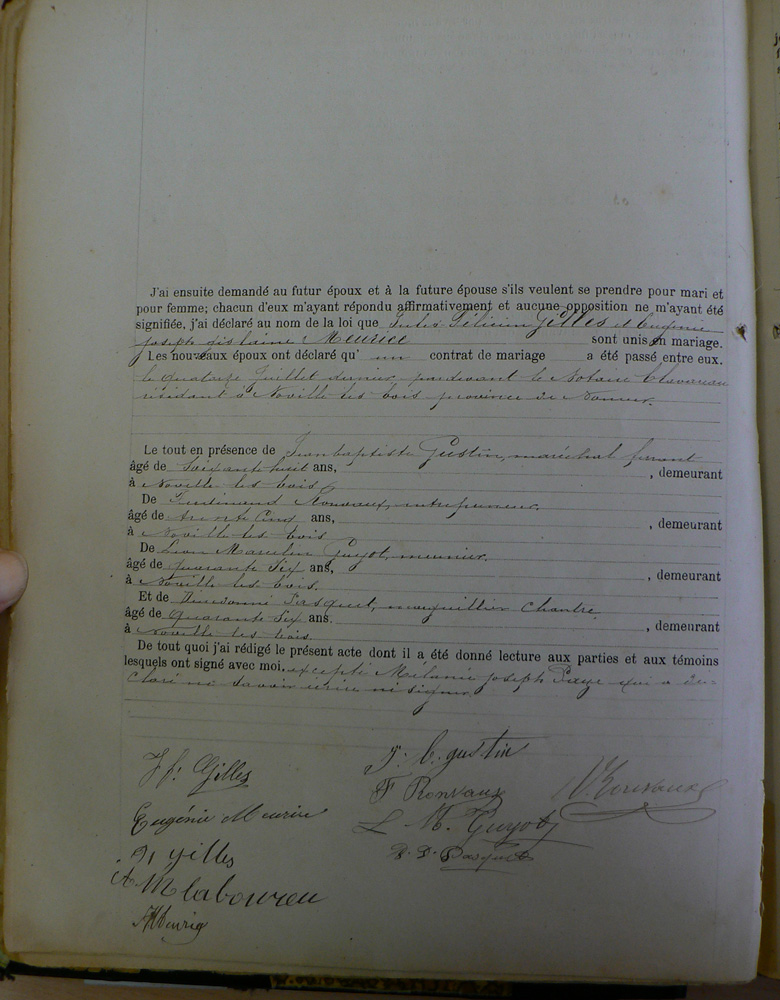 J'ai ensuite demandé au futur époux et à la future épouse s'ils veulent se prendre pour mari et
pour femme; chacun d'eux m'ayant répondu affirmativement et aucune opposition ne m'ayant été
signifiée, j'ai déclaré au nom de la loi que Jules Félicien Gilles et Eugénie
joseph gislaine Meurice sont unis en mariage.
Les nouveaux époux ont déclaré qu' un contrat de mariage a été passé entre eux.
le quatorze Juillet dernier pardevant le Notaire
résidant à Noville les bois province de Namur.
Le tout en présence de Jean baptiste Gustin, maréchal ferrant
âgé de Soixante huit ans, , demeurant
à Noville les bois
De Ferdinand Ronvaux, entrepreneur,
âgé de trente cinq ans, , demeurant
à Noville les bois
De Léon Marcelin Guyot, meunier,
âgé de quarante six ans, , demeurant
à Noville les bois.
Et de Dieudonné Pasquet, marguillier Chantre,
âgé de quarante six ans. , demeurant
à Noville les bois.
De tout quoi j'ai rédigé le présent acte dont il a été donné lecture aux parties et aux témoins
lesquels ont signé avec moi. excepté Mélanie joseph qui a dé=
claré ne savoir écrire ni signer
J. f. Gilles
J. b. gustin
F Ronvaux
Eugénie Meurice
L M. Guyot
gilles
D. D. Pasquet
M laboureau